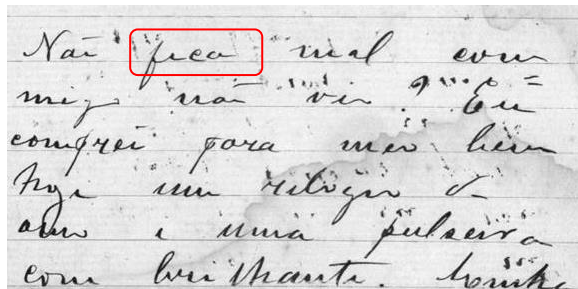 Não fica mal com
migo não viu? Eu
comprei para meu bem
hoje um relogio de
ouro e uma pulseira
com brilhante. Minha